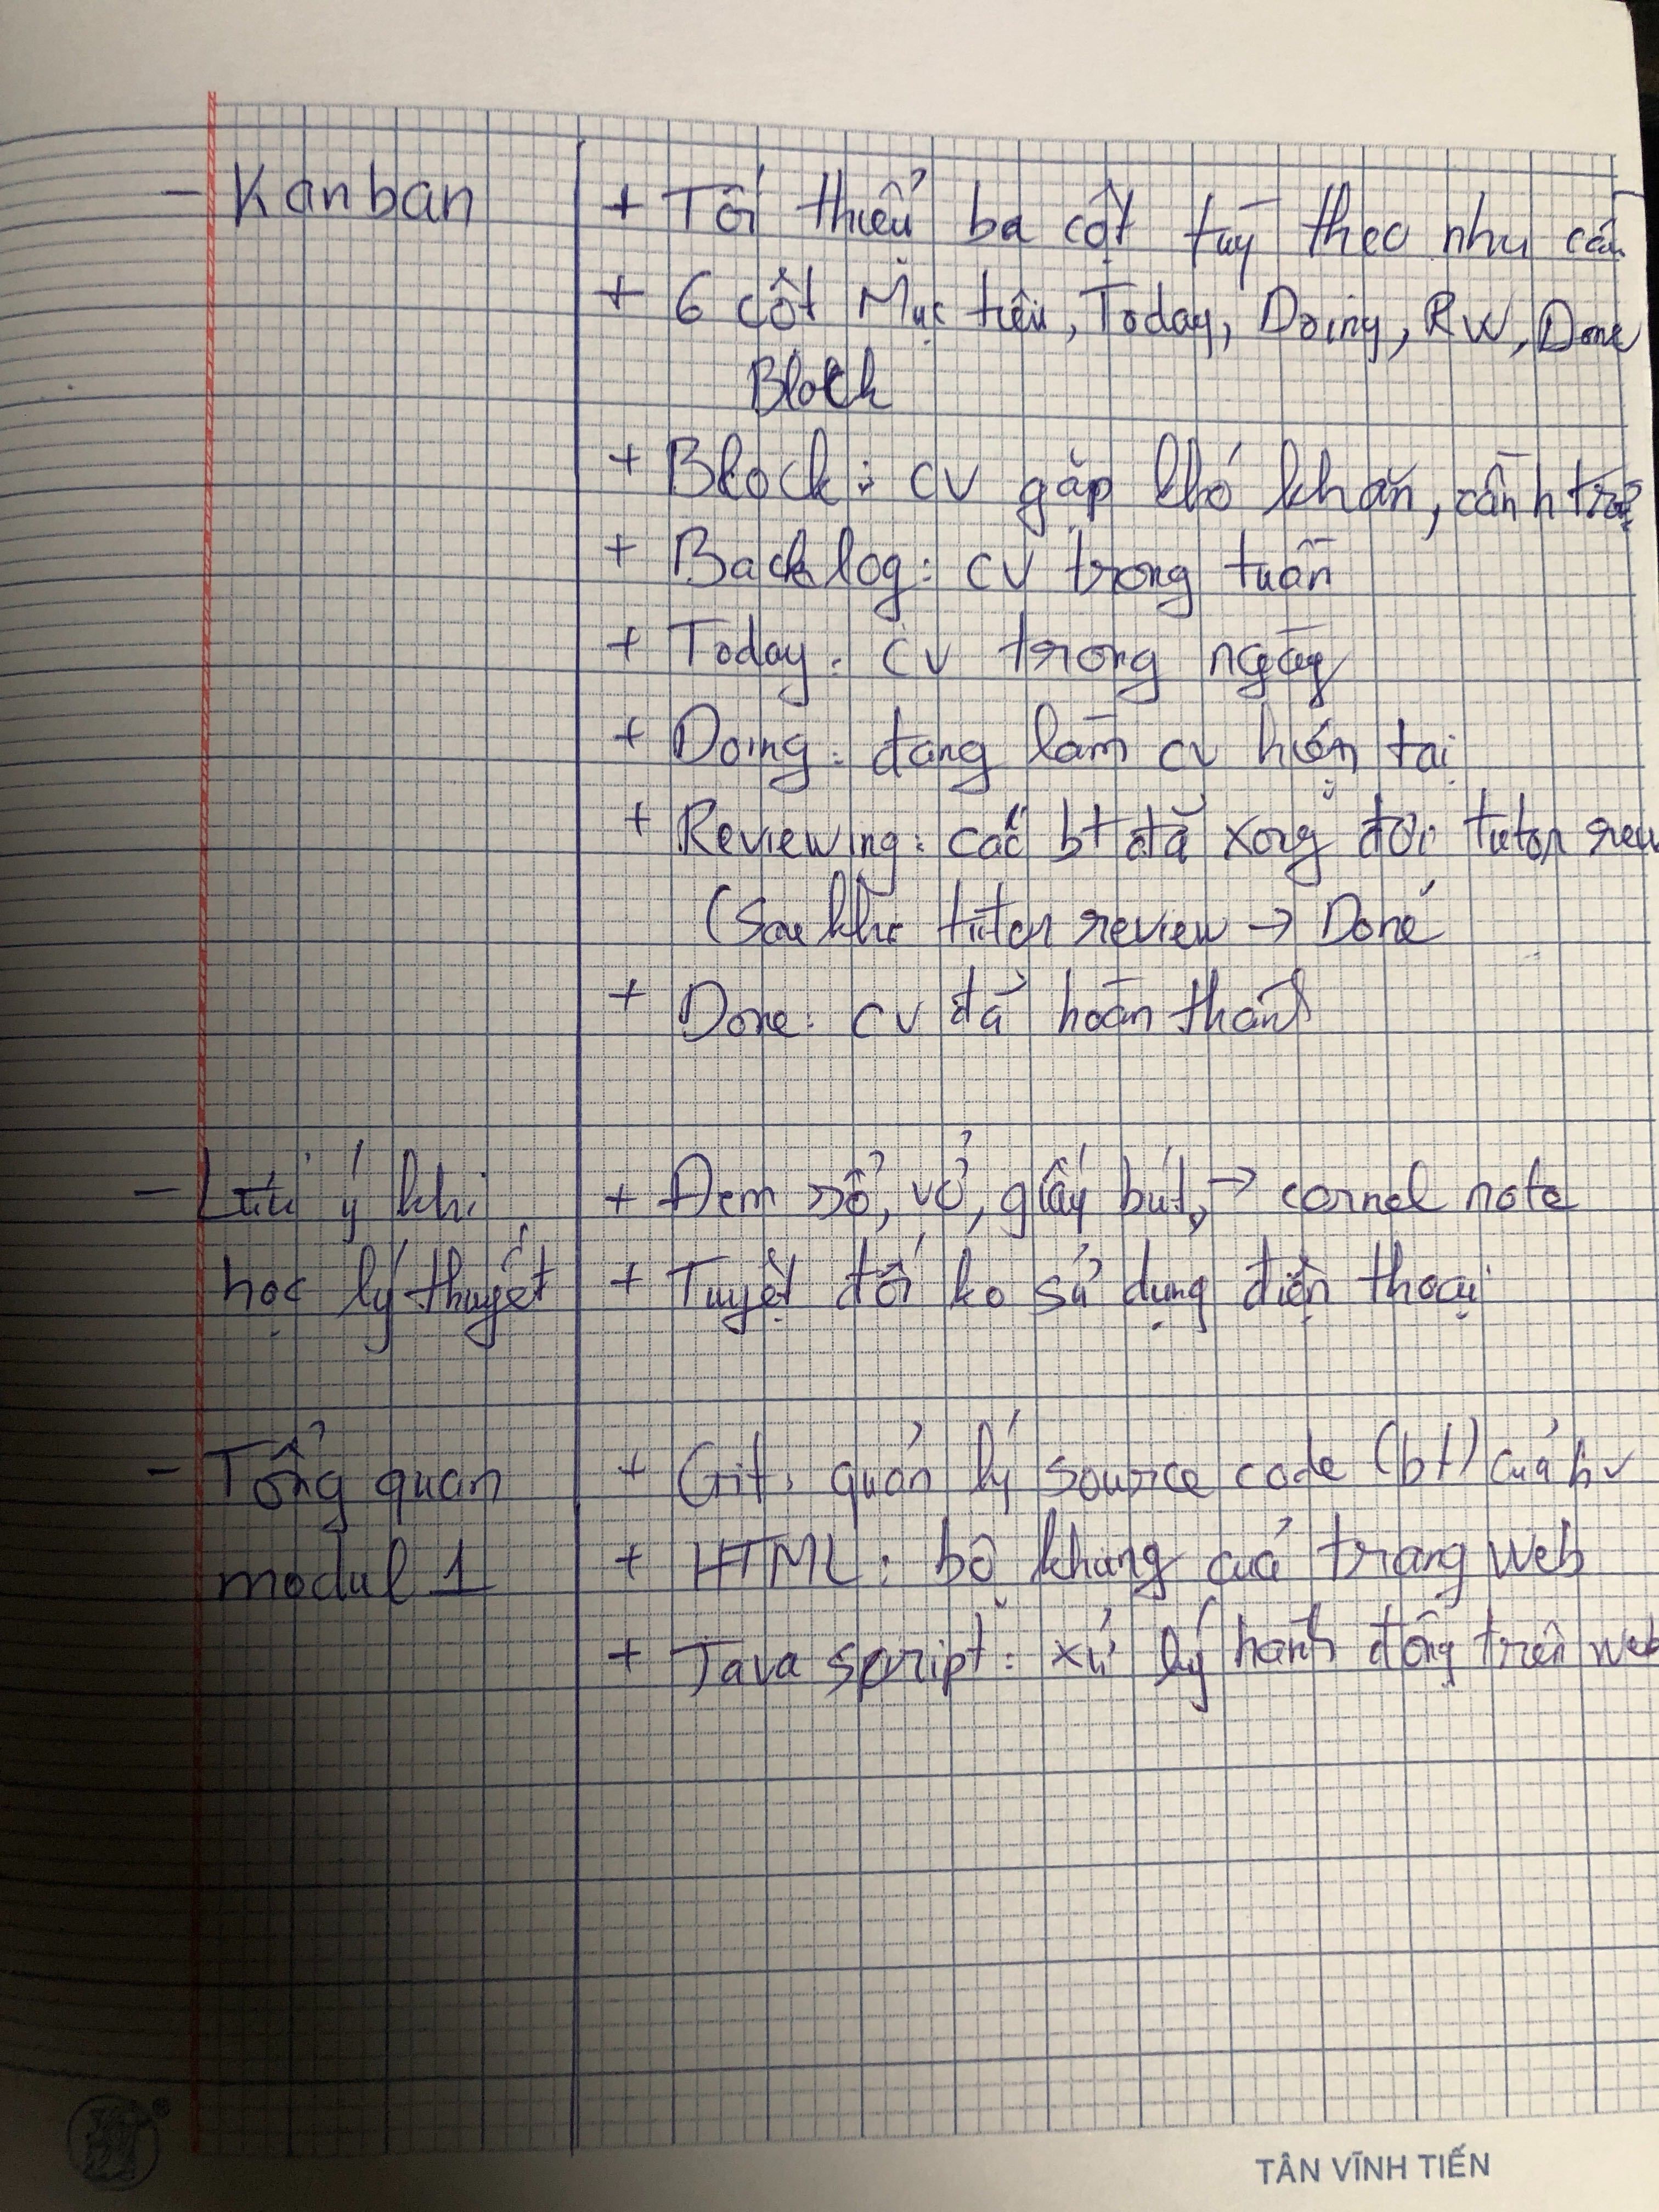 - Kanban
+ Tối thiểu ba cột tuỳ theo nhu cầu
+ 6 cột Mục tiêu, Today, Doing, RW, Done
Block
+ Block: cv gặp khó khăn, cần h trợ
+ Backlog: cv trong tuần
+ Today: cv trong ngày
+ Doing: đang làm cv hiện tại
+ Reviewing: các bt đã xong đợi tutor
(Sau khi tutor review → Done
+ Done: cv đã hoàn thành
- Lưu ý khi
học lý thuyết
+ Đem sổ, vở, giấy bút, → cornel note
+ Tuyệt đối ko sử dụng điện thoại
- Tổng quan
modul 1
+ Git: quản lý source code (bt) của hv
+ HTML: bộ khung của trang web
+ Java script: xử lý hành động trên web
TÂN VĨNH TIẾN